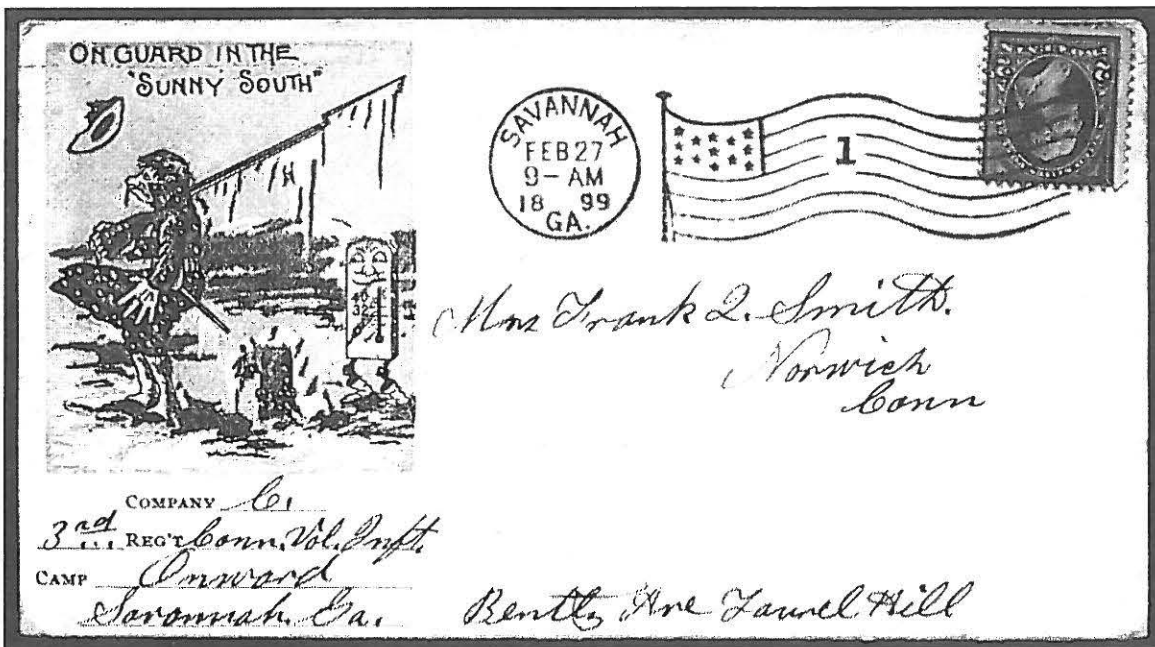 ON GUARD IN THE
"SUNNY SOUTH"
SAVANNAH
FEB 27
9-AM
18 99
GA.
1
Mrs Frank Q. Smith.
Norwich
Conn
COMPANY C.
3rd REG'T Conn. Vol. Inft.
CAMP Onward
Savannah. Ga.
Bentley Ave Laurel Hill